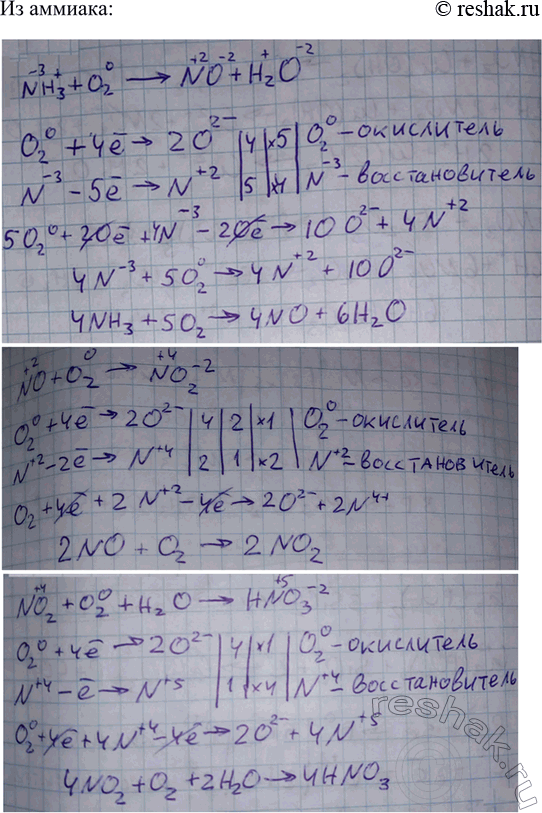 Из аммиака:
© reshak.ru
N⁻³H₃⁺ + O₂⁰ → N⁺²O⁻² + H₂⁺O⁻²
O₂⁰ + 4ē → 2O²⁻ | 4 | ×5 | O₂⁰ - окислитель
N⁻³ - 5ē → N⁺² | 5 | ×4 | N⁻³ - восстановитель
5O₂⁰ + 20ē + 4N⁻³ - 20ē → 10O²⁻ + 4N⁺²
4N⁻³ + 5O₂⁰ → 4N⁺² + 10O²⁻
4NH₃ + 5O₂ → 4NO + 6H₂O
N⁺²O + O₂⁰ → N⁺⁴O₂⁻²
O₂⁰ + 4ē → 2O²⁻ | 4 | 2 | ×1 | O₂⁰ - окислитель
N⁺² - 2ē → N⁺⁴ | 2 | 1 | ×2 | N⁺² - восстановитель
O₂ + 4ē + 2N⁺² - 4ē → 2O²⁻ + 2N⁴⁺
2NO + O₂ → 2NO₂
N⁺⁴O₂ + O₂⁰ + H₂O → HN⁺⁵O₃⁻²
O₂⁰ + 4ē → 2O²⁻ | 4 | ×1 | O₂⁰ - окислитель
N⁺⁴ - ē → N⁺⁵ | 1 | ×4 | N⁺⁴ - восстановитель
O₂⁰ + 4ē + 4N⁺⁴ - 4ē → 2O²⁻ + 4N⁺⁵
4NO₂ + O₂ + 2H₂O → 4HNO₃
reshak.ru